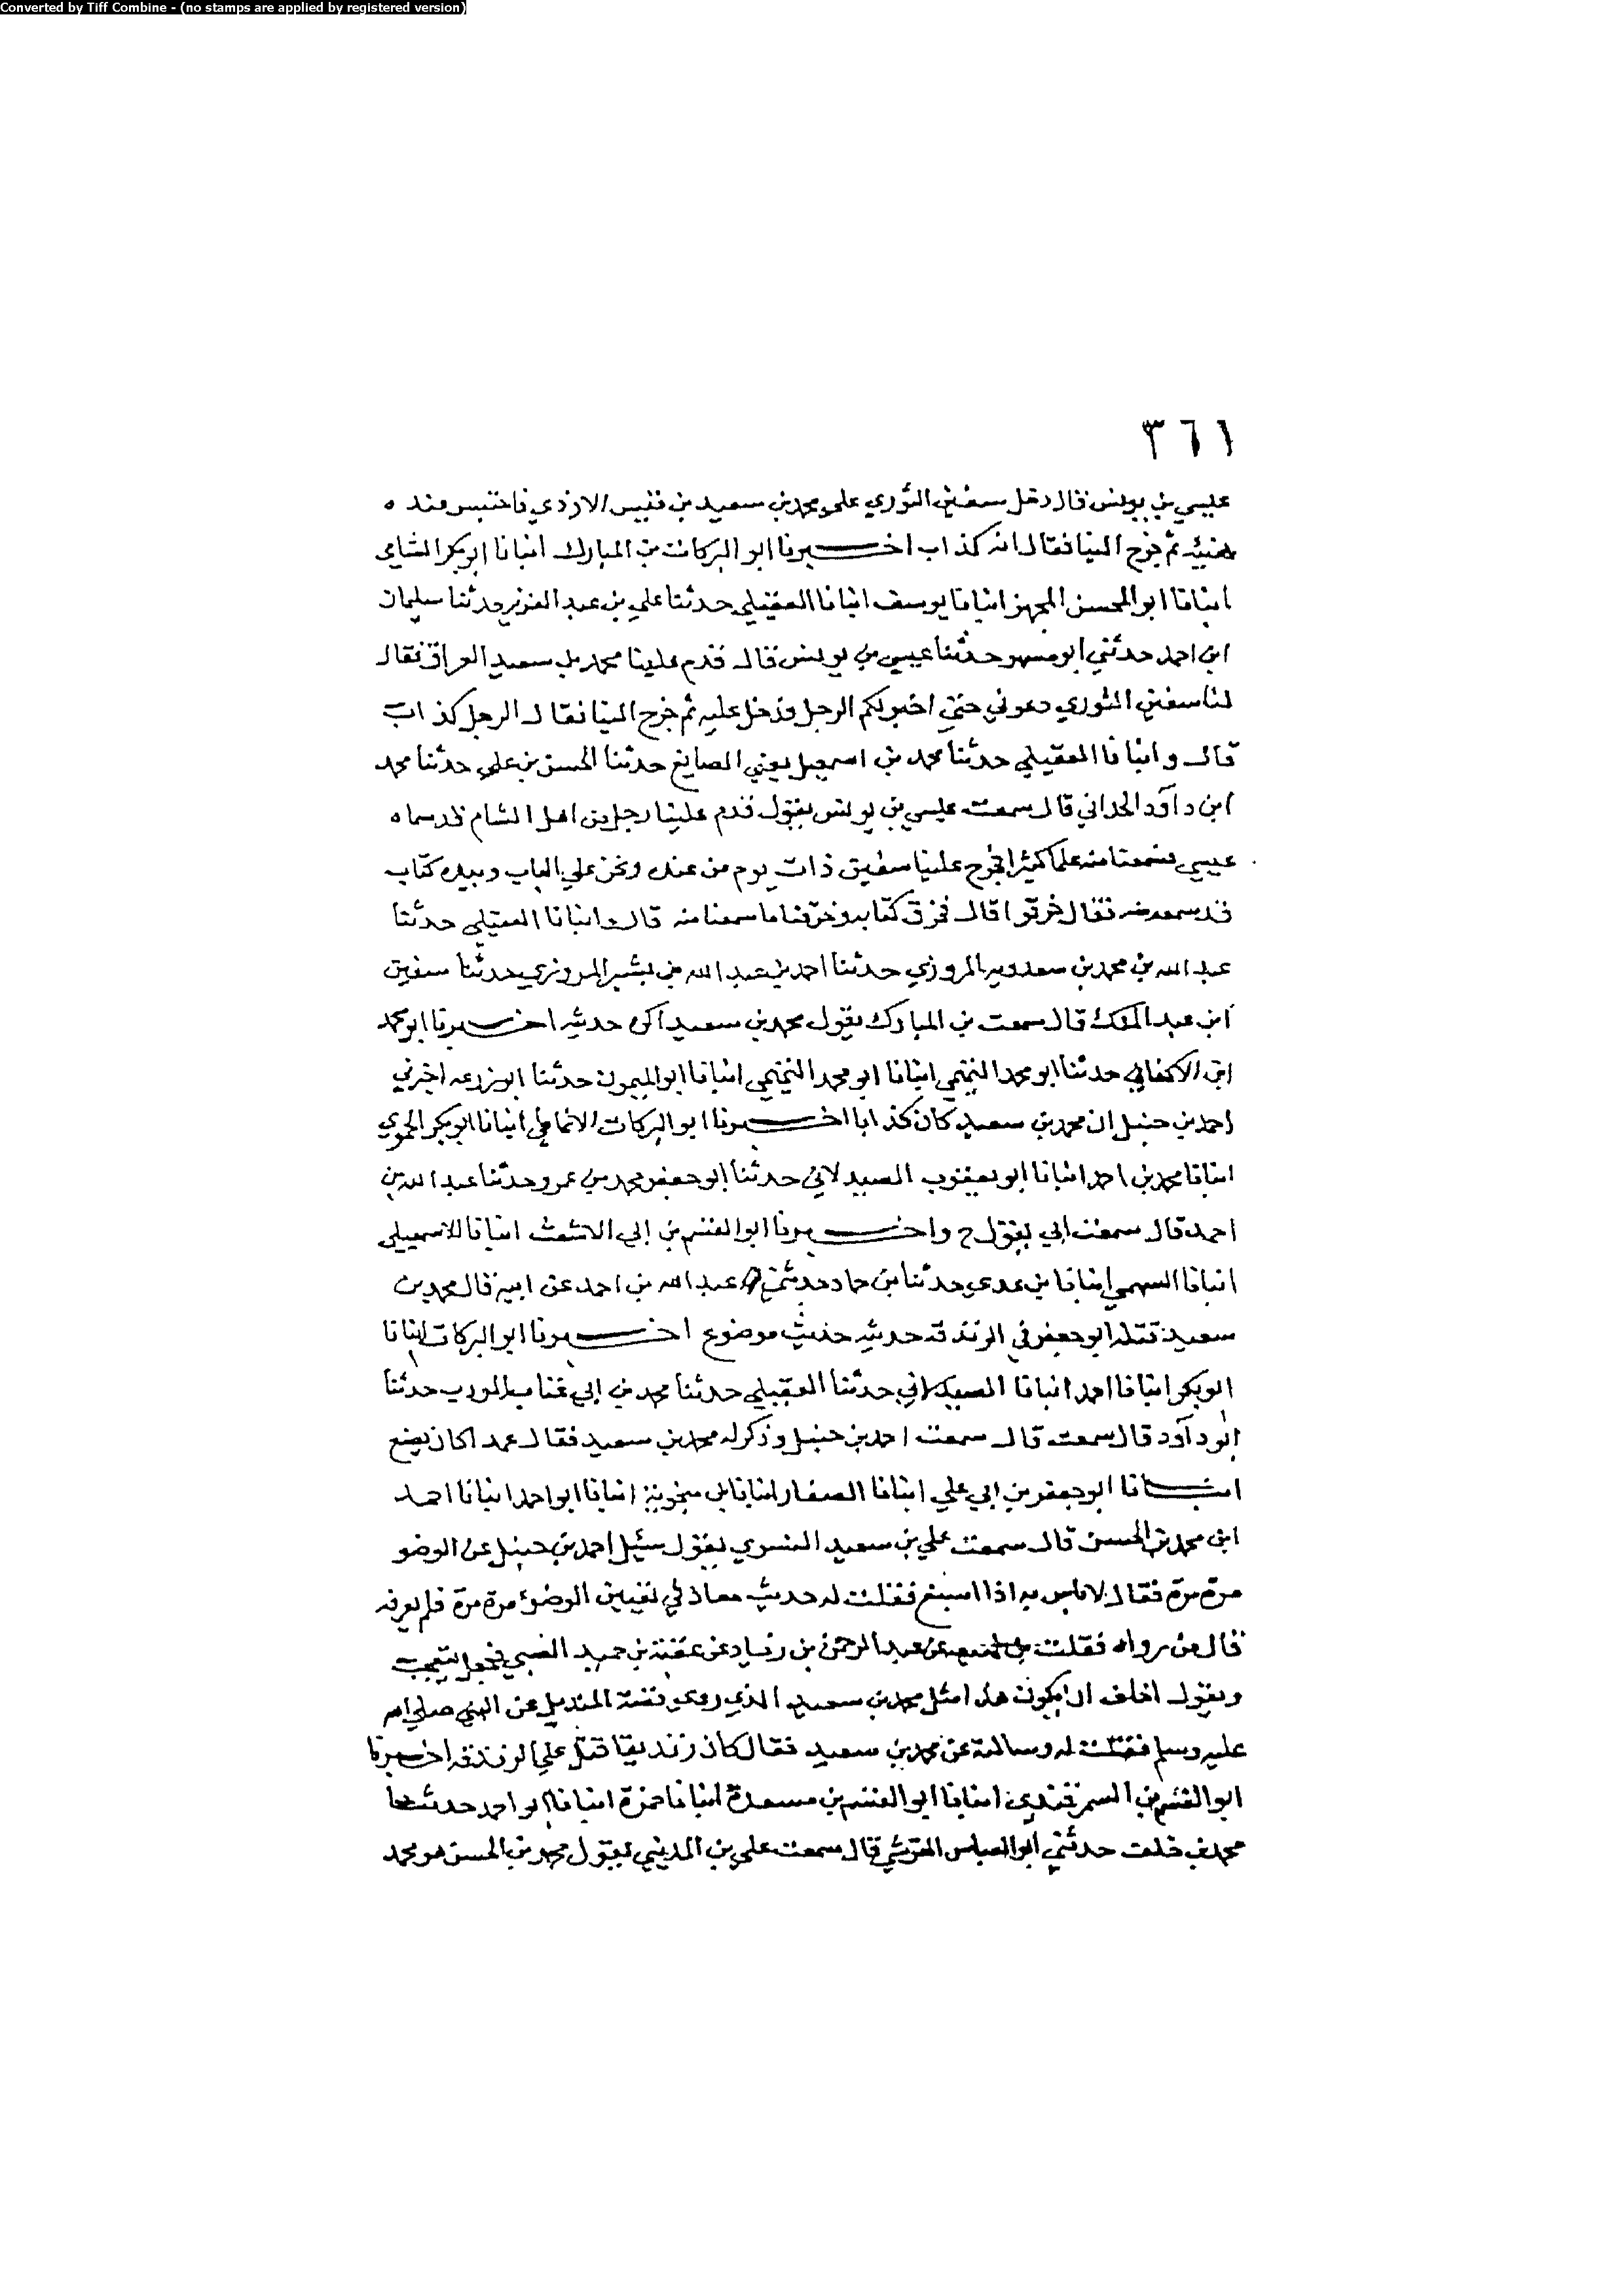 Converted by Tiff Combine - (no stamps are applied by registered version)
٣٦١
عيسي بن يونس قال دخل سفين الثوري علي محمد بن سعيد بن قيس الازدي فاحتبس عنده
هنيئه ثم خرج الينا فقال انه كذاب اخبرنا ابو البركات بن المبارك انبانا ابو بكر الشامي
انبانا ابو الحسن المجهز انبانا يوسف انبانا العقيلي حدثنا علي بن عبد العزيز حدثنا سليمان
ابن احمد حدثني ابو مسهر حدثنا عيسي بن يونس قال قدم علينا محمد بن سعيد العراق فقال
لنا سفين الثوري دعوني حتي اخبر لكم الرجل فدخل عليه ثم خرج الينا فقال الرجل كذاب
قال وانبانا العقيلي حدثنا محمد بن اسمعيل يعني الصايغ حدثنا الحسن بن علي حدثنا محمد
ابن داود الحداني قال سمعت عيسي بن يونس يقول قدم علينا رجل من اهل الشام قد سماه
عيسي فسمعنا منه علما كثيرا فخرج علينا سفين ذات يوم من عنده ونحن علي الباب وبيده كتاب
قد سمعه منه فقال خرقوا قال فخرق كتابه وخرقنا ما سمعنا منه قال وانبانا العقيلي حدثنا
عبد الله بن محمد بن سعدويه المروزي حدثنا احمد بن عبد الله بن بشير المروزي حدثنا سفين
ابن عبد الملك قال سمعت بن المبارك يقول محمد بن سعيد اكره حديثه اخبرنا ابو محمد
ابن الاكفاني حدثنا ابو محمد التميمي انبانا ابو محمد التميمي انبانا ابو الميمون حدثنا ابو زرعه اخبرني
احمد بن حنبل ان محمد بن سعيد كان كذابا اخبرنا ابو البركات الانماطي انبانا ابو بكر الحموي
انبانا محمد بن احمد انبانا ابو يعقوب الصيدلاني حدثنا ابو جعفر محمد بن عمرو حدثنا عبد الله بن
احمد قال سمعت ابي يقول ح واخبرنا ابو القسم بن ابي الاشعث انبانا الاسمعيلي
انبانا السهمي انبانا بن عدي حدثنا بن حماد حدثني عبد الله بن احمد عن ابيه قال محمد بن
سعيد قتله ابو جعفر في الزندقه حديثه حديث موضوع اخبرنا ابو البركات انبانا
ابو بكر انبانا احمد انبانا الصيدلاني حدثنا العقيلي حدثنا محمد بن ابي عتاب المودب حدثنا
ابو داود قال سمعت قال سمعت احمد بن حنبل وذكر له محمد بن سعيد فقال عمدا كان يضع
انبانا ابو جعفر بن ابي علي انبانا الصفار انبانا بن منجويه انبانا ابو احمد انبانا احمد
ابن محمد بن الحسن قال سمعت علي بن سعيد النسوي يقول سئل احمد بن حنبل عن الوضو
مرة مرة فقال لا باس به اذا اسبغ فقلت له حديث معاذ في الوضؤ مرة مرة فلم يعرفه
قال من رواه فقلت عن عبد الرحمن بن زياد عن عتبة بن حميد الضبي فجعل يتعجب
ويقول اخاف ان يكون هذا مثل محمد بن سعيد الذي روي قصة المنديل عن النبي صلي الله
عليه وسلم فقلت له وسالته عن محمد بن سعيد فقال كان زنديقا قتل علي الزندقه اخبرنا
ابو القسم بن السمرقندي انبانا ابو القسم بن مسعدة انبانا حمزة انبانا ابو احمد حدثنا
محمد بن خلف حدثني ابو العباس القرشي قال سمعت علي بن المديني يقول محمد بن الحسن هو محمد